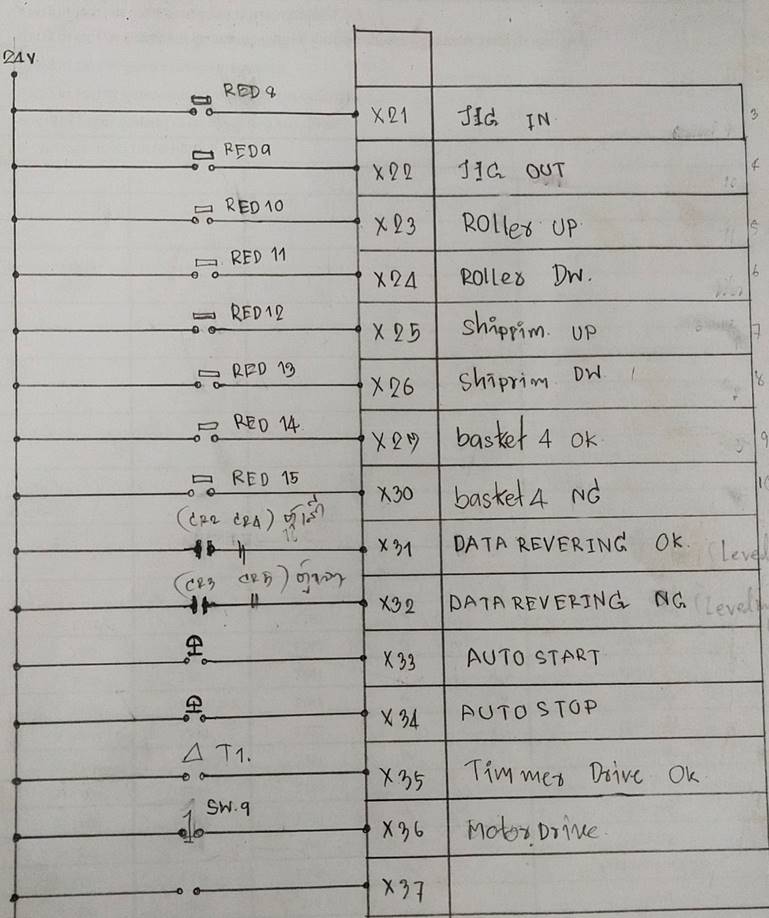 24V
RED 8 X21 JIG IN 3
RED 9 X22 JIG OUT 4
RED 10 X23 Roller UP 5
RED 11 X24 Roller DW. 6
RED 12 X25 Shippim. UP 7
RED 13 X26 Shiprim DW 8
RED 14 X27 basket 4 OK 9
RED 15 X30 basket 4 NG 10
(CR2 CR4)
X31 DATA REVERING OK (Level
(CR3 CR5)
X32 DATA REVERING NG (Level
X33 AUTO START
X34 AUTO STOP
T1. X35 Timmer Drive OK
SW.9 X36 Motor Drive
X37